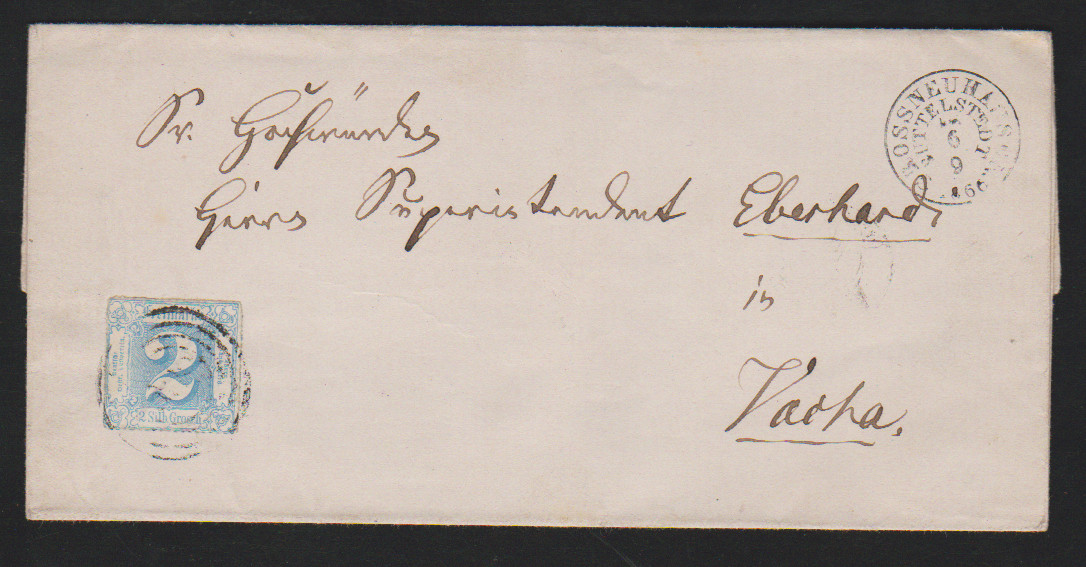 Sr. Hochwürden
Herrn Superintendent Eberhard,
in
Vacha.
GROSSNEUHAUSEN
BUTTELSTEDT
6
9
1866
Freimarke
2
2 Silb. Grosch.